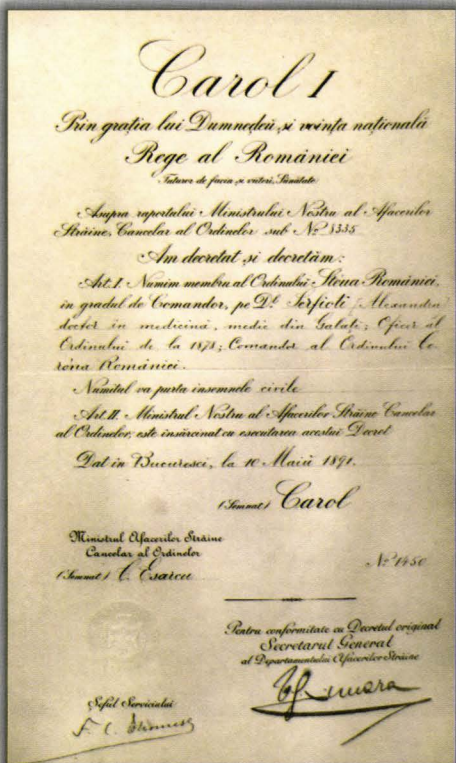 Carol I
Prin grația lui Dumnedeŭ și voința națională
Rege al României
Tuturor de facia și viitori, Sănătate
Asupra raportului Ministrului Nostru al Afacerilor
Străine, Cancelar al Ordinelor sub Nº 8335
Am decretat și decretăm:
Art. I. Numim membru al Ordinului Steua României,
in gradul de Comandor, pe D.
doctor in medicină, medic din Galati; Oficer al
Ordinului de la 1878; Comandor al Ordinului Co-
rona Romăniei.
Numitul va purta insemnele civile
Art. II. Ministrul Nostru al Afacerilor Străine Cancelar
al Ordinelor, este insărcinat cu esecutarea acestui Decret
Dat in Bucuresci, la 10 Maiŭ 1891.
(Semnat) Carol
Ministrul Afacerilor Străine
Cancelar al Ordinelor
(Semnat) C. Esarcu
Nº 1450
Pentru conformitate cu Decretul original
Secretarul General
al Departamentului Afacerilor Străine
Șeful Serviciului